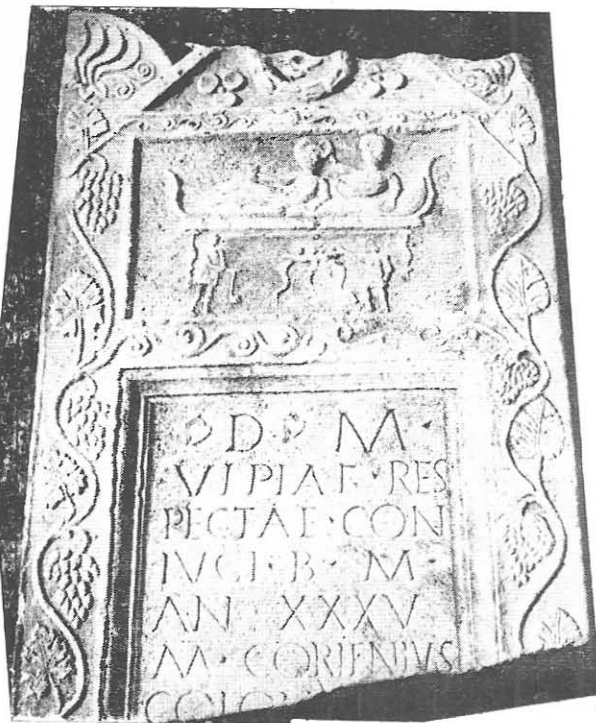 D · M ·
VLPIAE · RES
PECTAE · CON
IVGI · B · M ·
AN XXXV
M · CORIENIVS